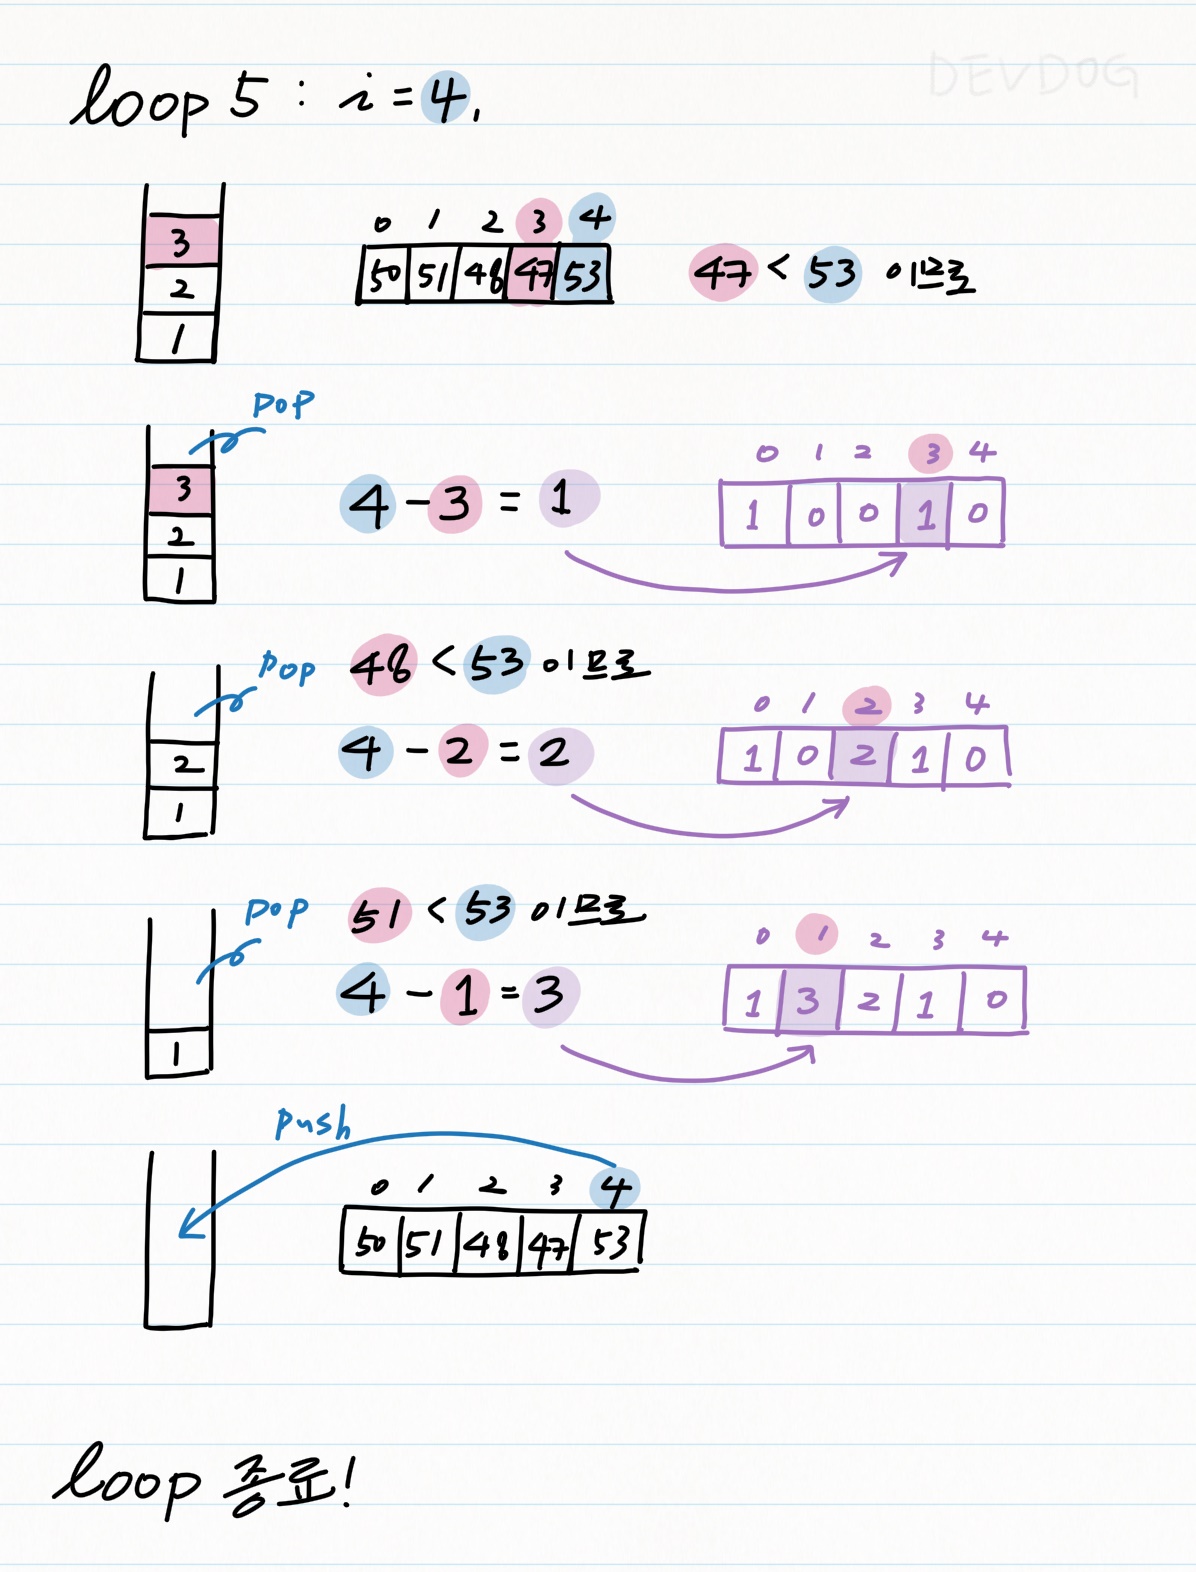 DEVDOG
loop 5 : i = 4.
0 1 2 3 4
3
2
1
50 51 48 47 53
47 < 53 이므로
pop
3
2
1
4 - 3 = 1
0 1 2 3 4
1 0 0 1 0
pop
48 < 53 이므로
2
1
4 - 2 = 2
0 1 2 3 4
1 0 2 1 0
pop
51 < 53 이므로
1
4 - 1 = 3
0 1 2 3 4
1 3 2 1 0
push
0 1 2 3 4
50 51 48 47 53
loop 종료!